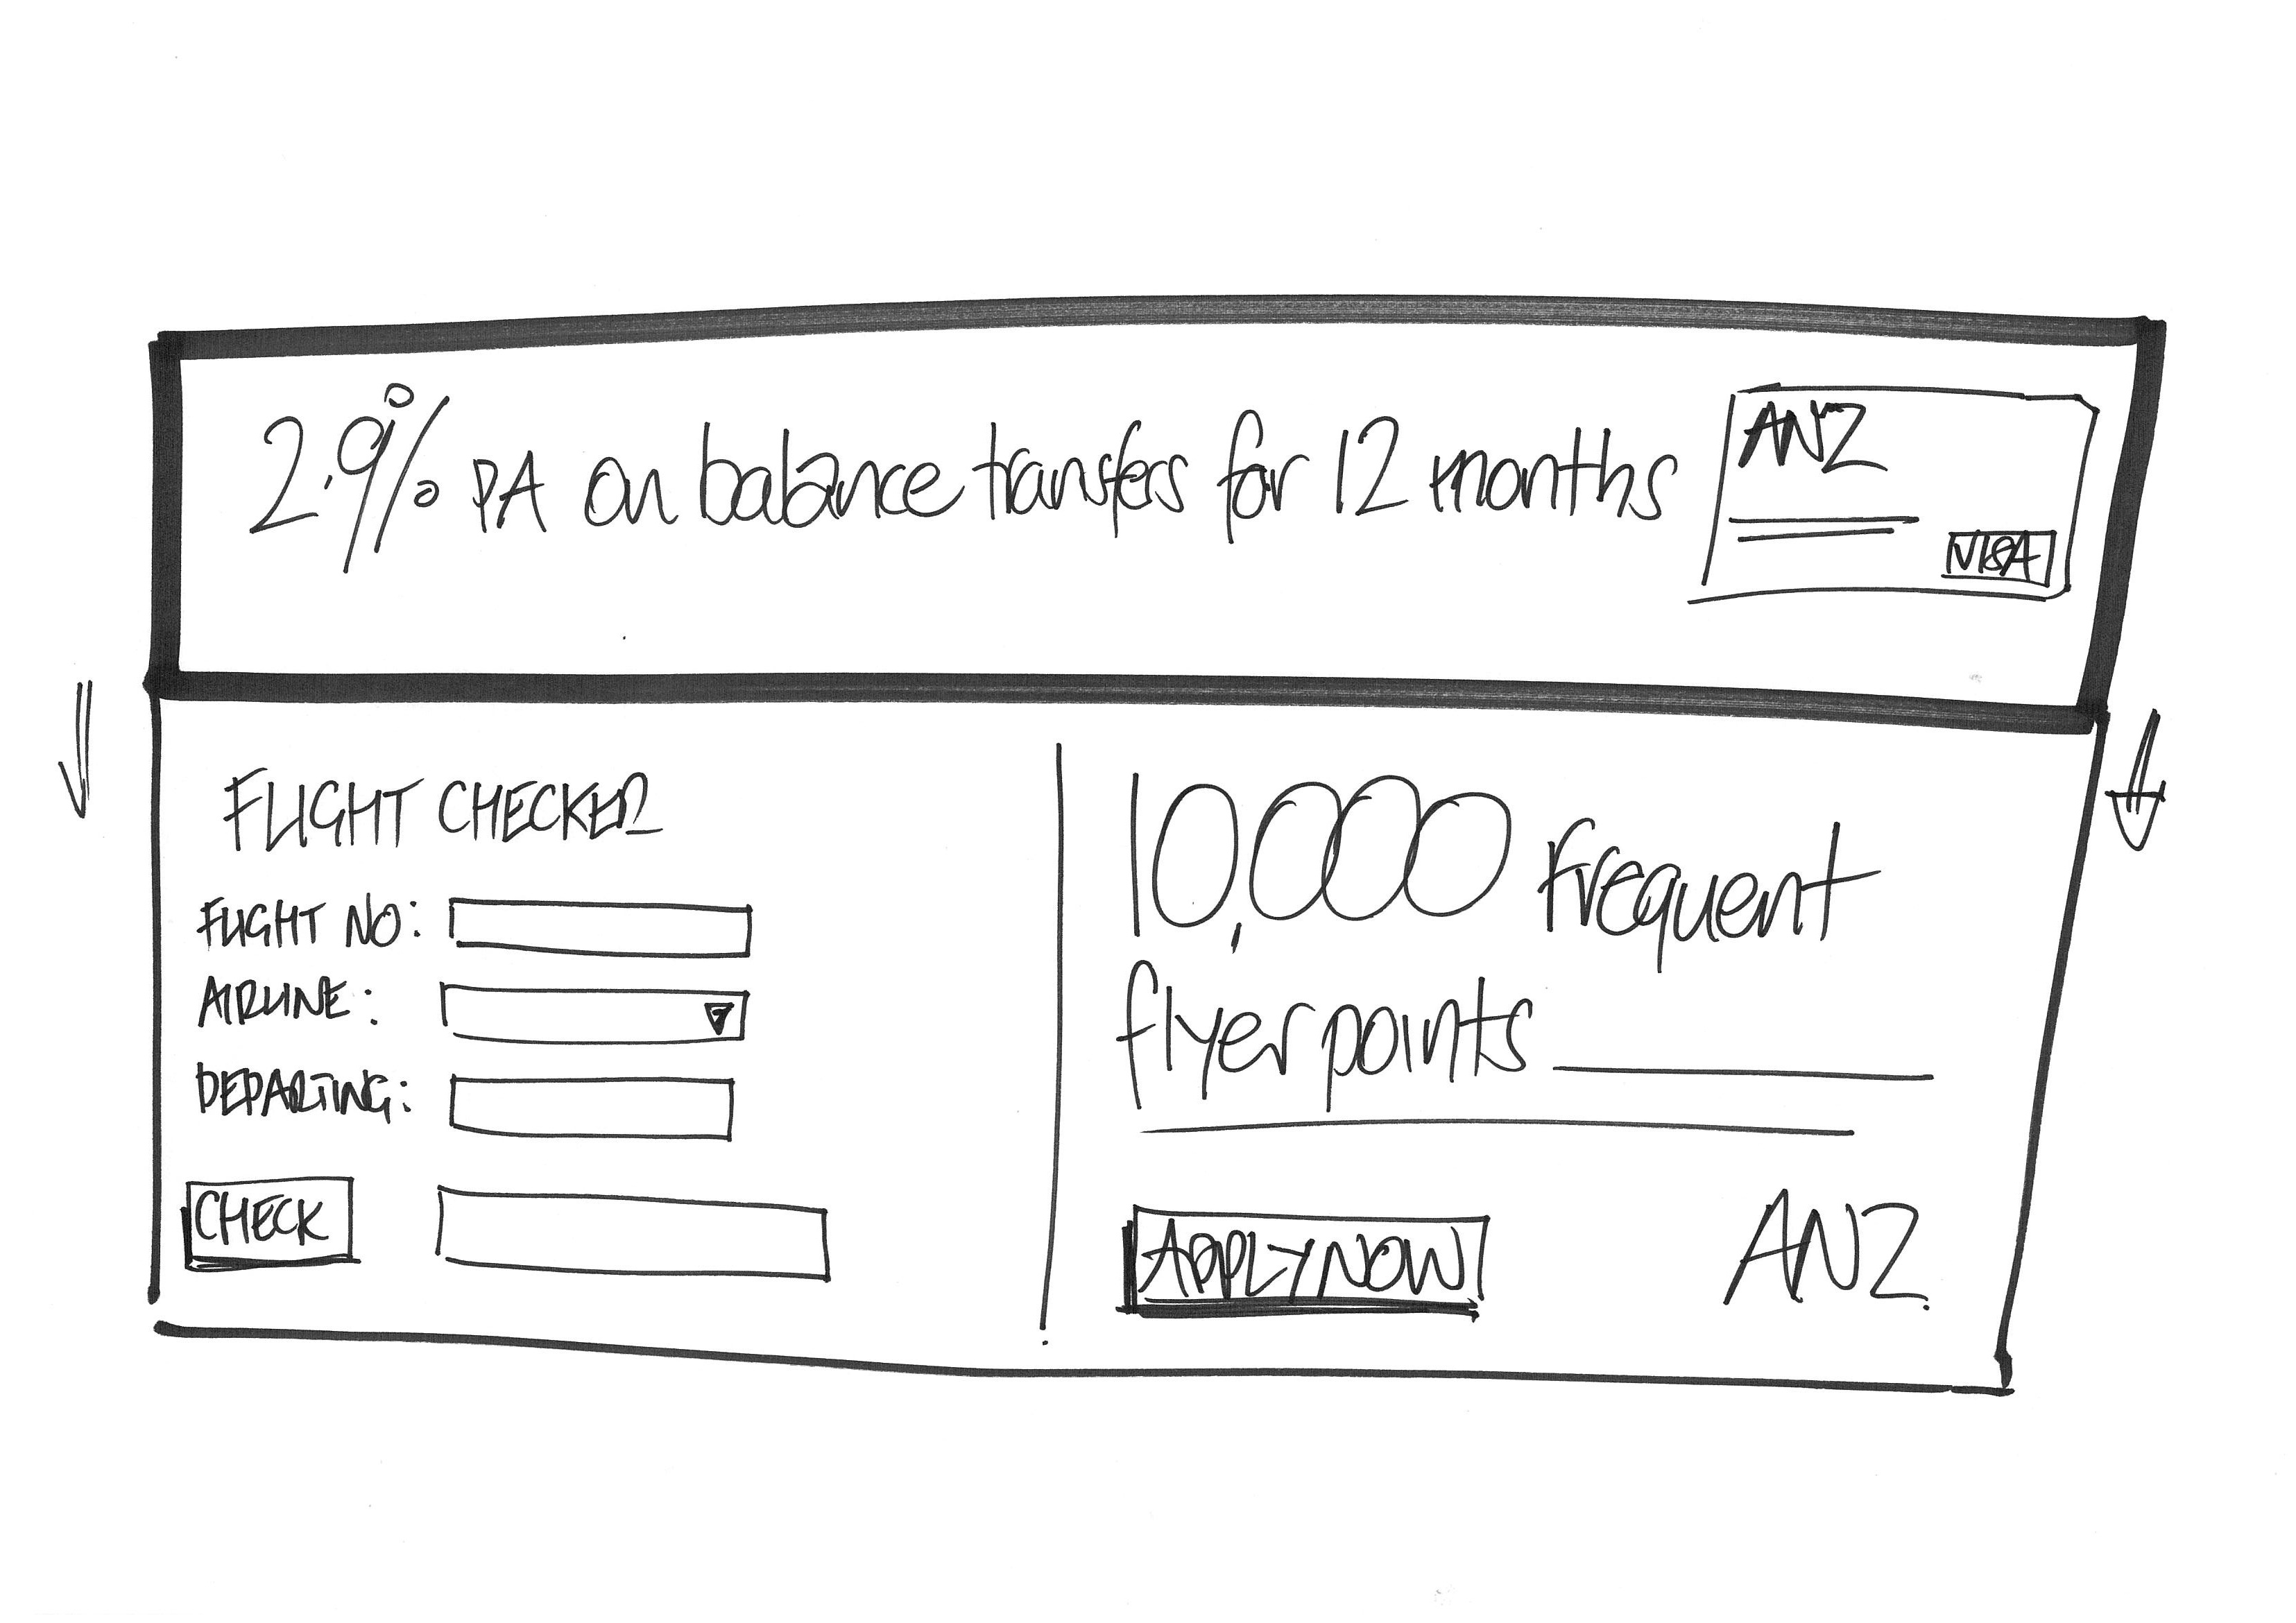 2.9% PA on balance transfers for 12 months
ANZ
VISA
FLIGHT CHECKER
FLIGHT NO:
AIRLINE:
DEPARTING:
CHECK
10,000 Frequent
flyer points
APPLY NOW
ANZ